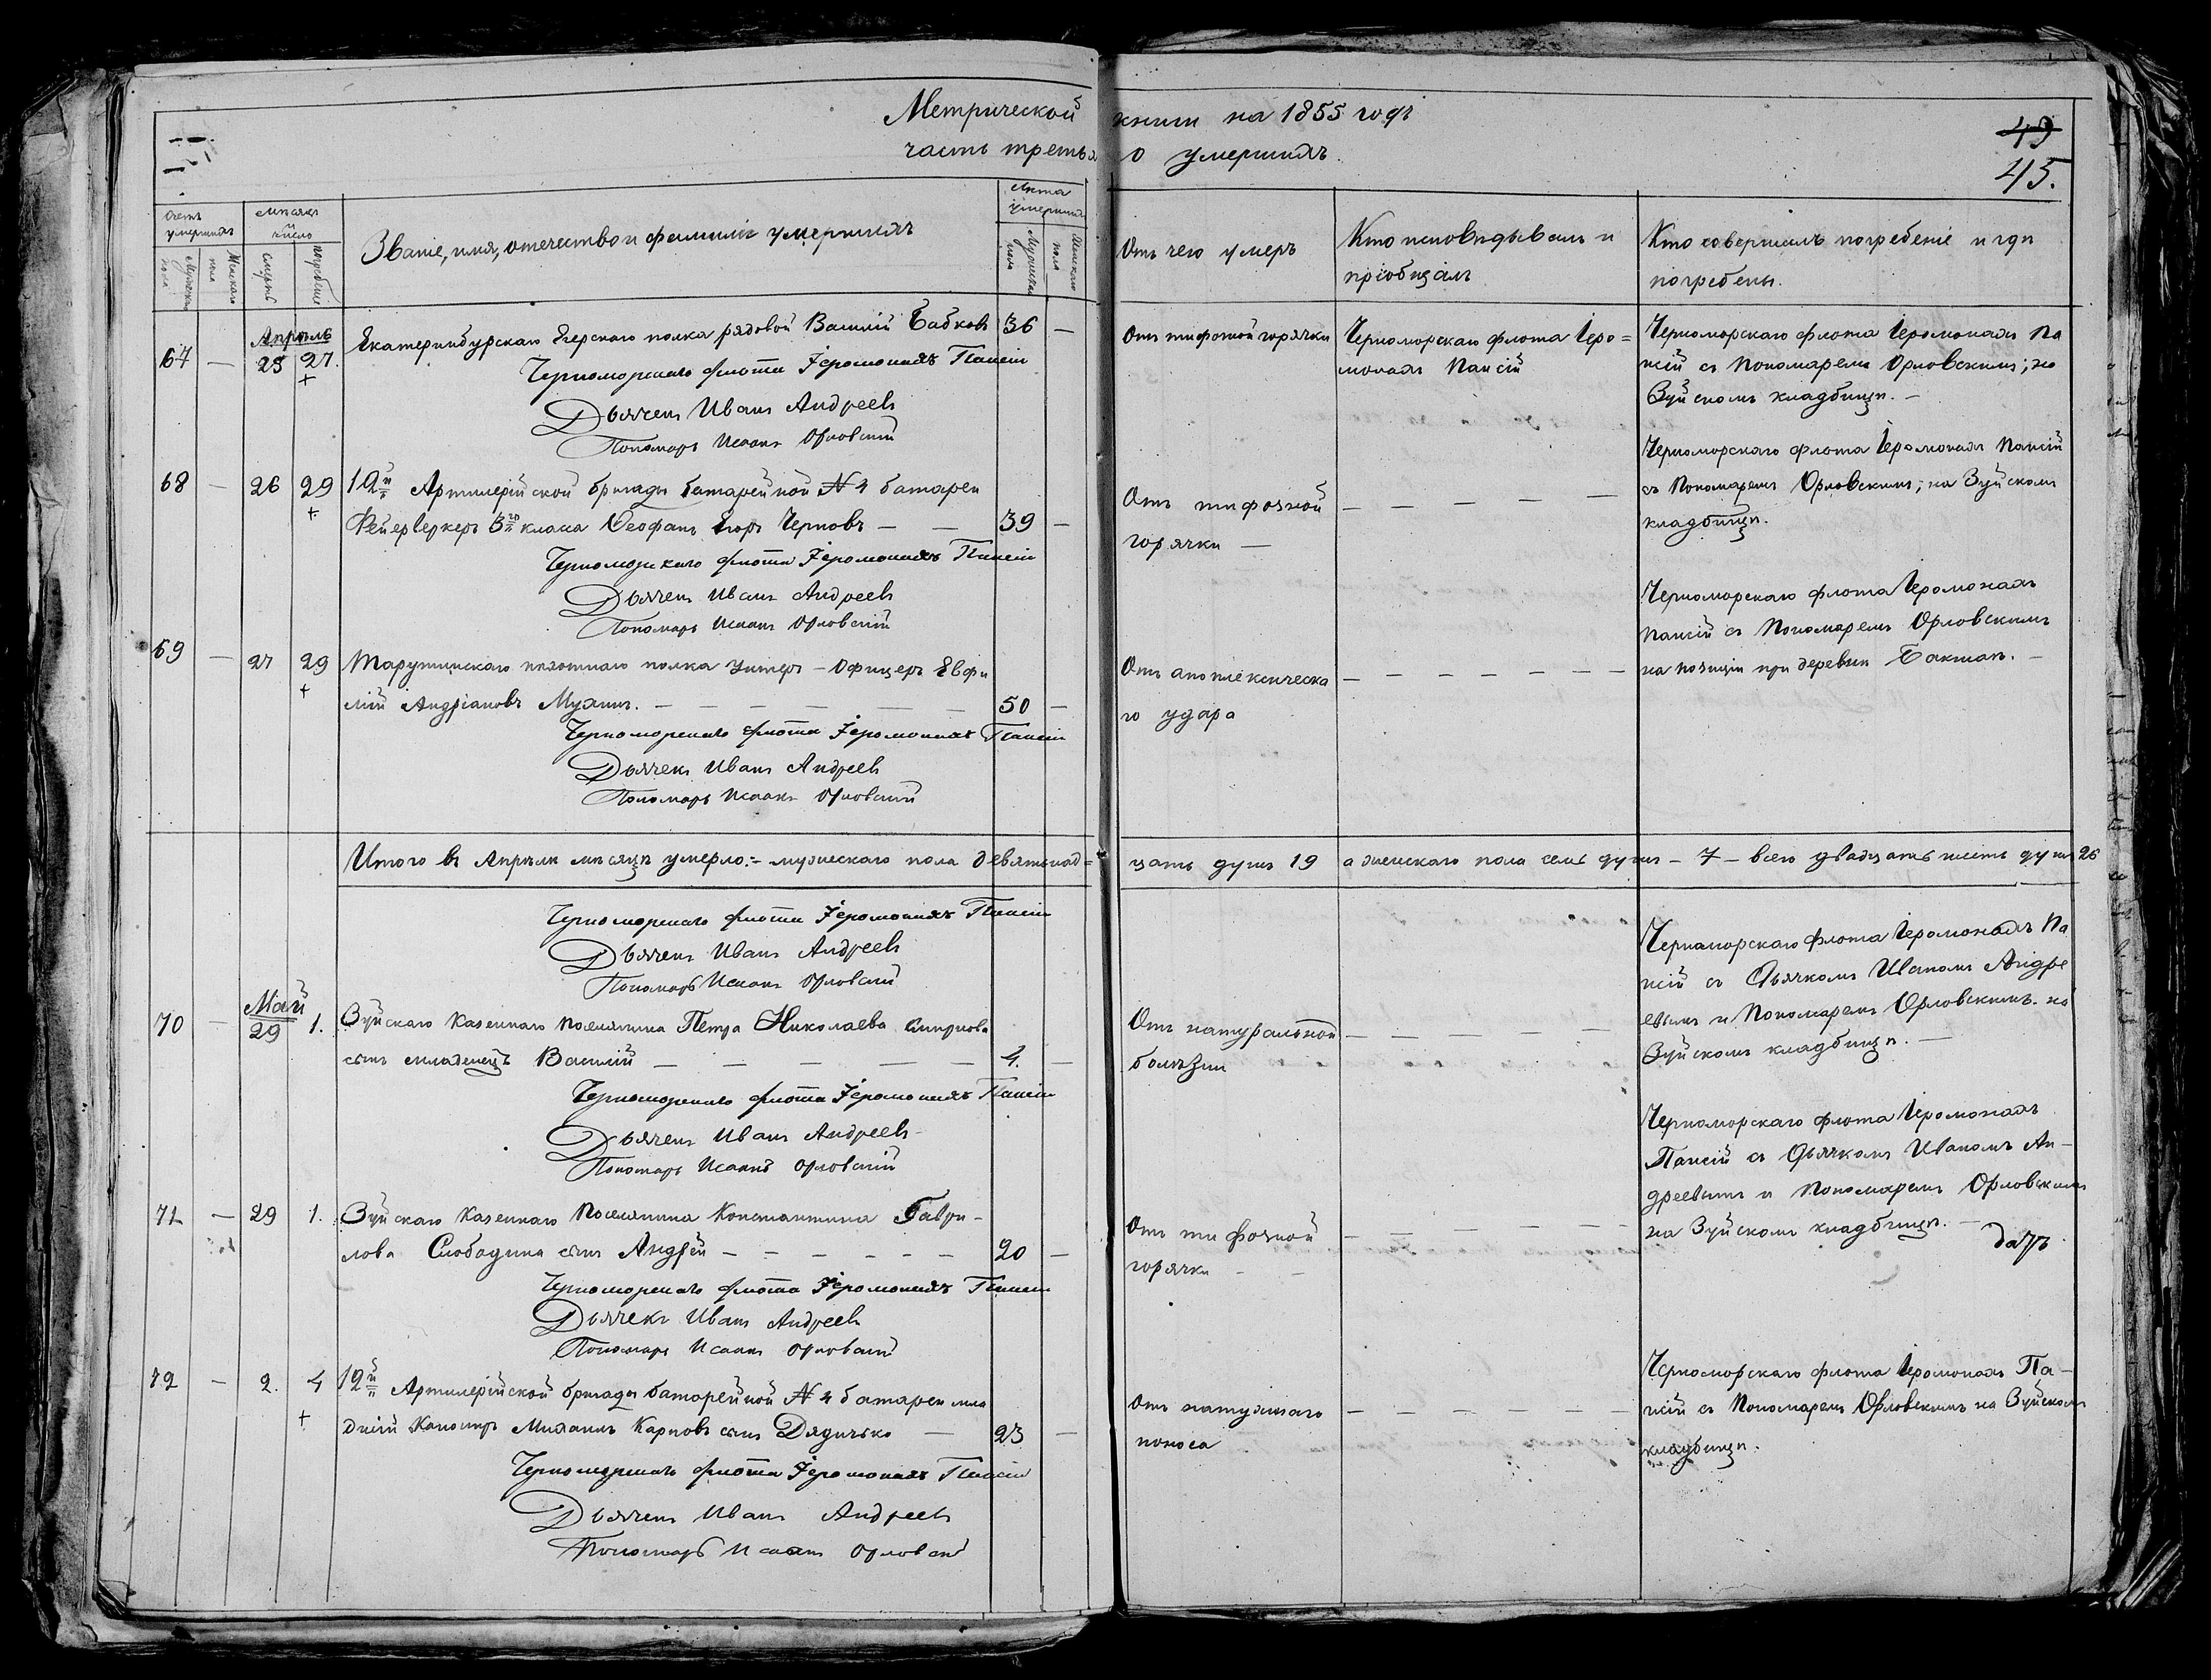 Метрической книги на 1855 годъ
часть третья о умершихъ.
49
45.
Счетъ умершихъ
Мужеска пола
Женскаго пола
мѣсяцъ й число
смерть
погребение
Званіе, имя, отечество и фамиліи умершихъ
Лѣта умершихъ
Мужескаго пола
Женскаго пола
Отъ чего умеръ
Кто исповѣдывалъ и
пріобщалъ
Кто совершалъ погребеніе и гдѣ
погребены.
Апрѣль
67 — 25 27. Екатеринбурскаго Егерскаго полка рядовой Василій Бабковъ 36 —
Черноморскаго флота Іеромонахъ Паисій
Дьячекъ Иванъ Андреевъ
Пономарь Исаакъ Орловскій
Отъ тифозной горячки
Черноморскаго флота Іеро=
монахъ Паисій
Черноморскаго флота Іеромонахъ Па
исій съ Пономаремъ Орловскимъ; на
Зуйскомъ кладбищѣ. —
68 — 26 29 12й Артилерійской бригады батарейной № 4 батареи
Фейерверкеръ 3го класа Феофанъ Черновъ — — 39 —
Черноморскаго флота Іеромонахъ Паисій
Дьячекъ Иванъ Андреевъ
Пономарь Исаакъ Орловскій
Отъ тифозной
горячки —
— — — —
Черноморскаго флота Іеромонахъ Паисій
съ Пономаремъ Орловскимъ; на Зуйскомъ
кладбищѣ.
69 — 27 29 Тарутинскаго пѣхотнаго полка Унтеръ-Офицеръ Евфи
мій Андріановъ Мухинъ. — — — — — — 50 —
Черноморскаго флота Іеромонахъ Паисій
Дьячекъ Иванъ Андреевъ
Пономарь Исаакъ Орловскій
Отъ апоплексическа
го удара
— — — — — —
Черноморскаго флота Іеромонахъ
Паисій съ Пономаремъ Орловскимъ
на позиціи при деревни Бакшай. —
Итого въ Апрѣли мѣсяцѣ умерло:- мужескаго пола девятьнад=
цать душъ 19 а женскаго пола семь душъ — 7 — всего двадцать шесть душъ 26
Черноморскаго флота Іеромонахъ Паисій
Дьячекъ Иванъ Андреевъ
Пономарь Исаакъ Орловскій
Май
70 — 29 1. Зуйскаго Казеннаго поселянина Петра Николаева Смирнова
сынъ младенецъ Василій — — — — — 4. —
Черноморскаго флота Іеромонахъ Паисій
Дьячекъ Иванъ Андреевъ
Пономарь Исаакъ Орловскій
Отъ натуральной
болѣзни
— — — — —
Черноморскаго флота Іеромонахъ Па
исій съ Дьячкомъ Иваномъ Андре
евымъ и Пономаремъ Орловскимъ. на
Зуйскомъ кладбищѣ. —
71 — 29 1. Зуйскаго Казеннаго Поселянина Константина Гаври-
лова Слободина сынъ Андрей — — — — — — 20 —
Черноморскаго флота Іеромонахъ Паисій
Дьячекъ Иванъ Андреевъ
Пономарь Исаакъ Орловскій
Отъ тифозной
горячки — —
— — — — — —
Черноморскаго флота Іеромонахъ
Паисій съ Дьячкомъ Иваномъ Ан-
дреевымъ и Пономаремъ Орловскимъ
на Зуйскомъ кладбищѣ. —
72 — 2. 4 12й Артилерійской бригады батарейной № 4 батареи мла
дшій Канониръ Михаилъ Карповъ сынъ Дядичько — 23 —
Черноморскаго флота Іеромонахъ Паисій
Дьячекъ Иванъ Андреевъ
Пономарь Исаакъ Орловскій
Отъ натужнаго
поноса
— — — — — —
Черноморскаго флота Іеромонахъ Па-
исій съ Пономаремъ Орловскимъ на Зуйскомъ
кладбищѣ.